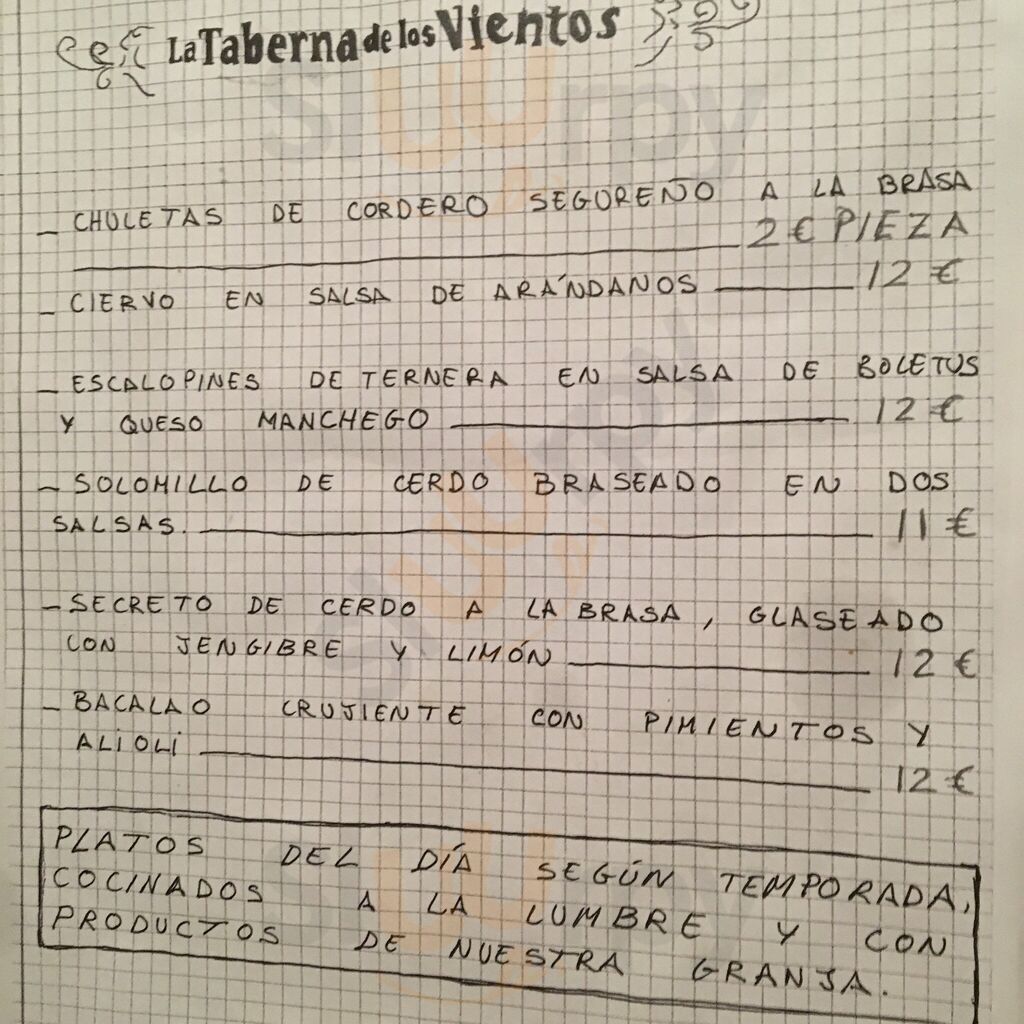 La Taberna de los Vientos
- CHULETAS DE CORDERO SEGUREÑO A LA BRASA
2 € PIEZA
- CIERVO EN SALSA DE ARÁNDANOS 12 €
- ESCALOPINES DE TERNERA EN SALSA DE BOLETUS
Y QUESO MANCHEGO 12 €
- SOLOMILLO DE CERDO BRASEADO EN DOS
SALSAS. 11 €
- SECRETO DE CERDO A LA BRASA, GLASEADO
CON JENGIBRE Y LIMÓN 12 €
- BACALAO CRUJIENTE CON PIMIENTOS Y
ALIOLI 12 €
PLATOS DEL DÍA SEGÚN TEMPORADA,
COCINADOS A LA LUMBRE Y CON
PRODUCTOS DE NUESTRA GRANJA.